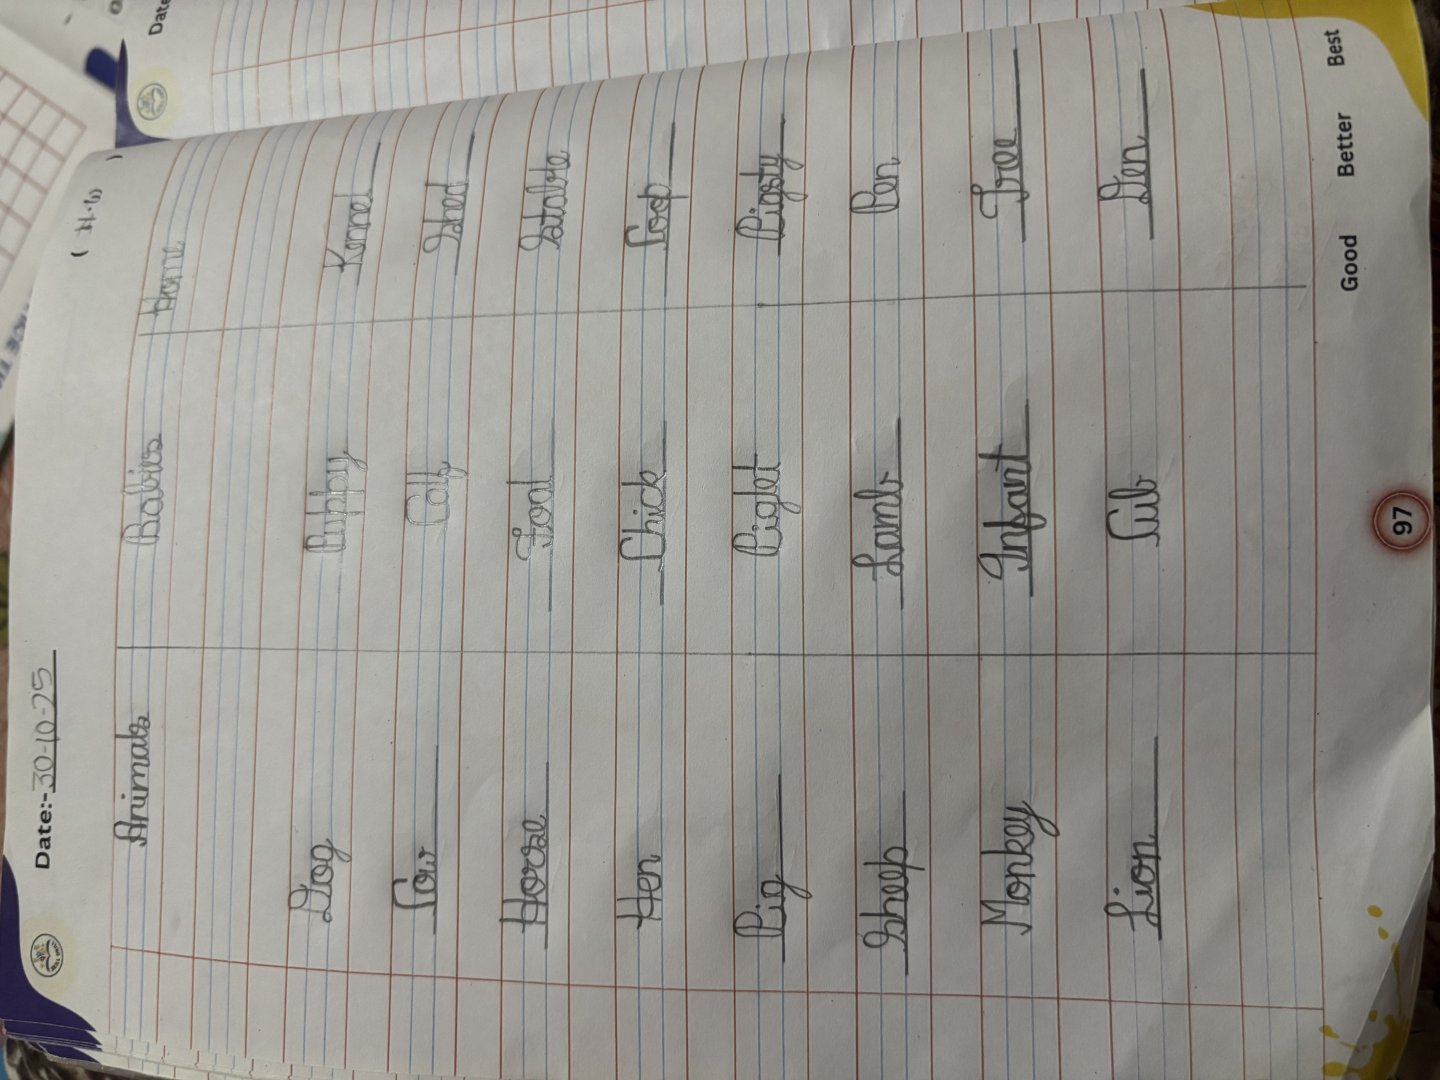 Date:- 30-10-25
( H.W )
Animals Babies Home
Dog Puppy Kennel
Cow Calf Shed
Horse Foal Stable
Hen Chick Coop
Pig Piglet Pigsty
Sheep Lamb Pen
Monkey Infant Tree
Lion Cub Den
97
Good Better Best
Date